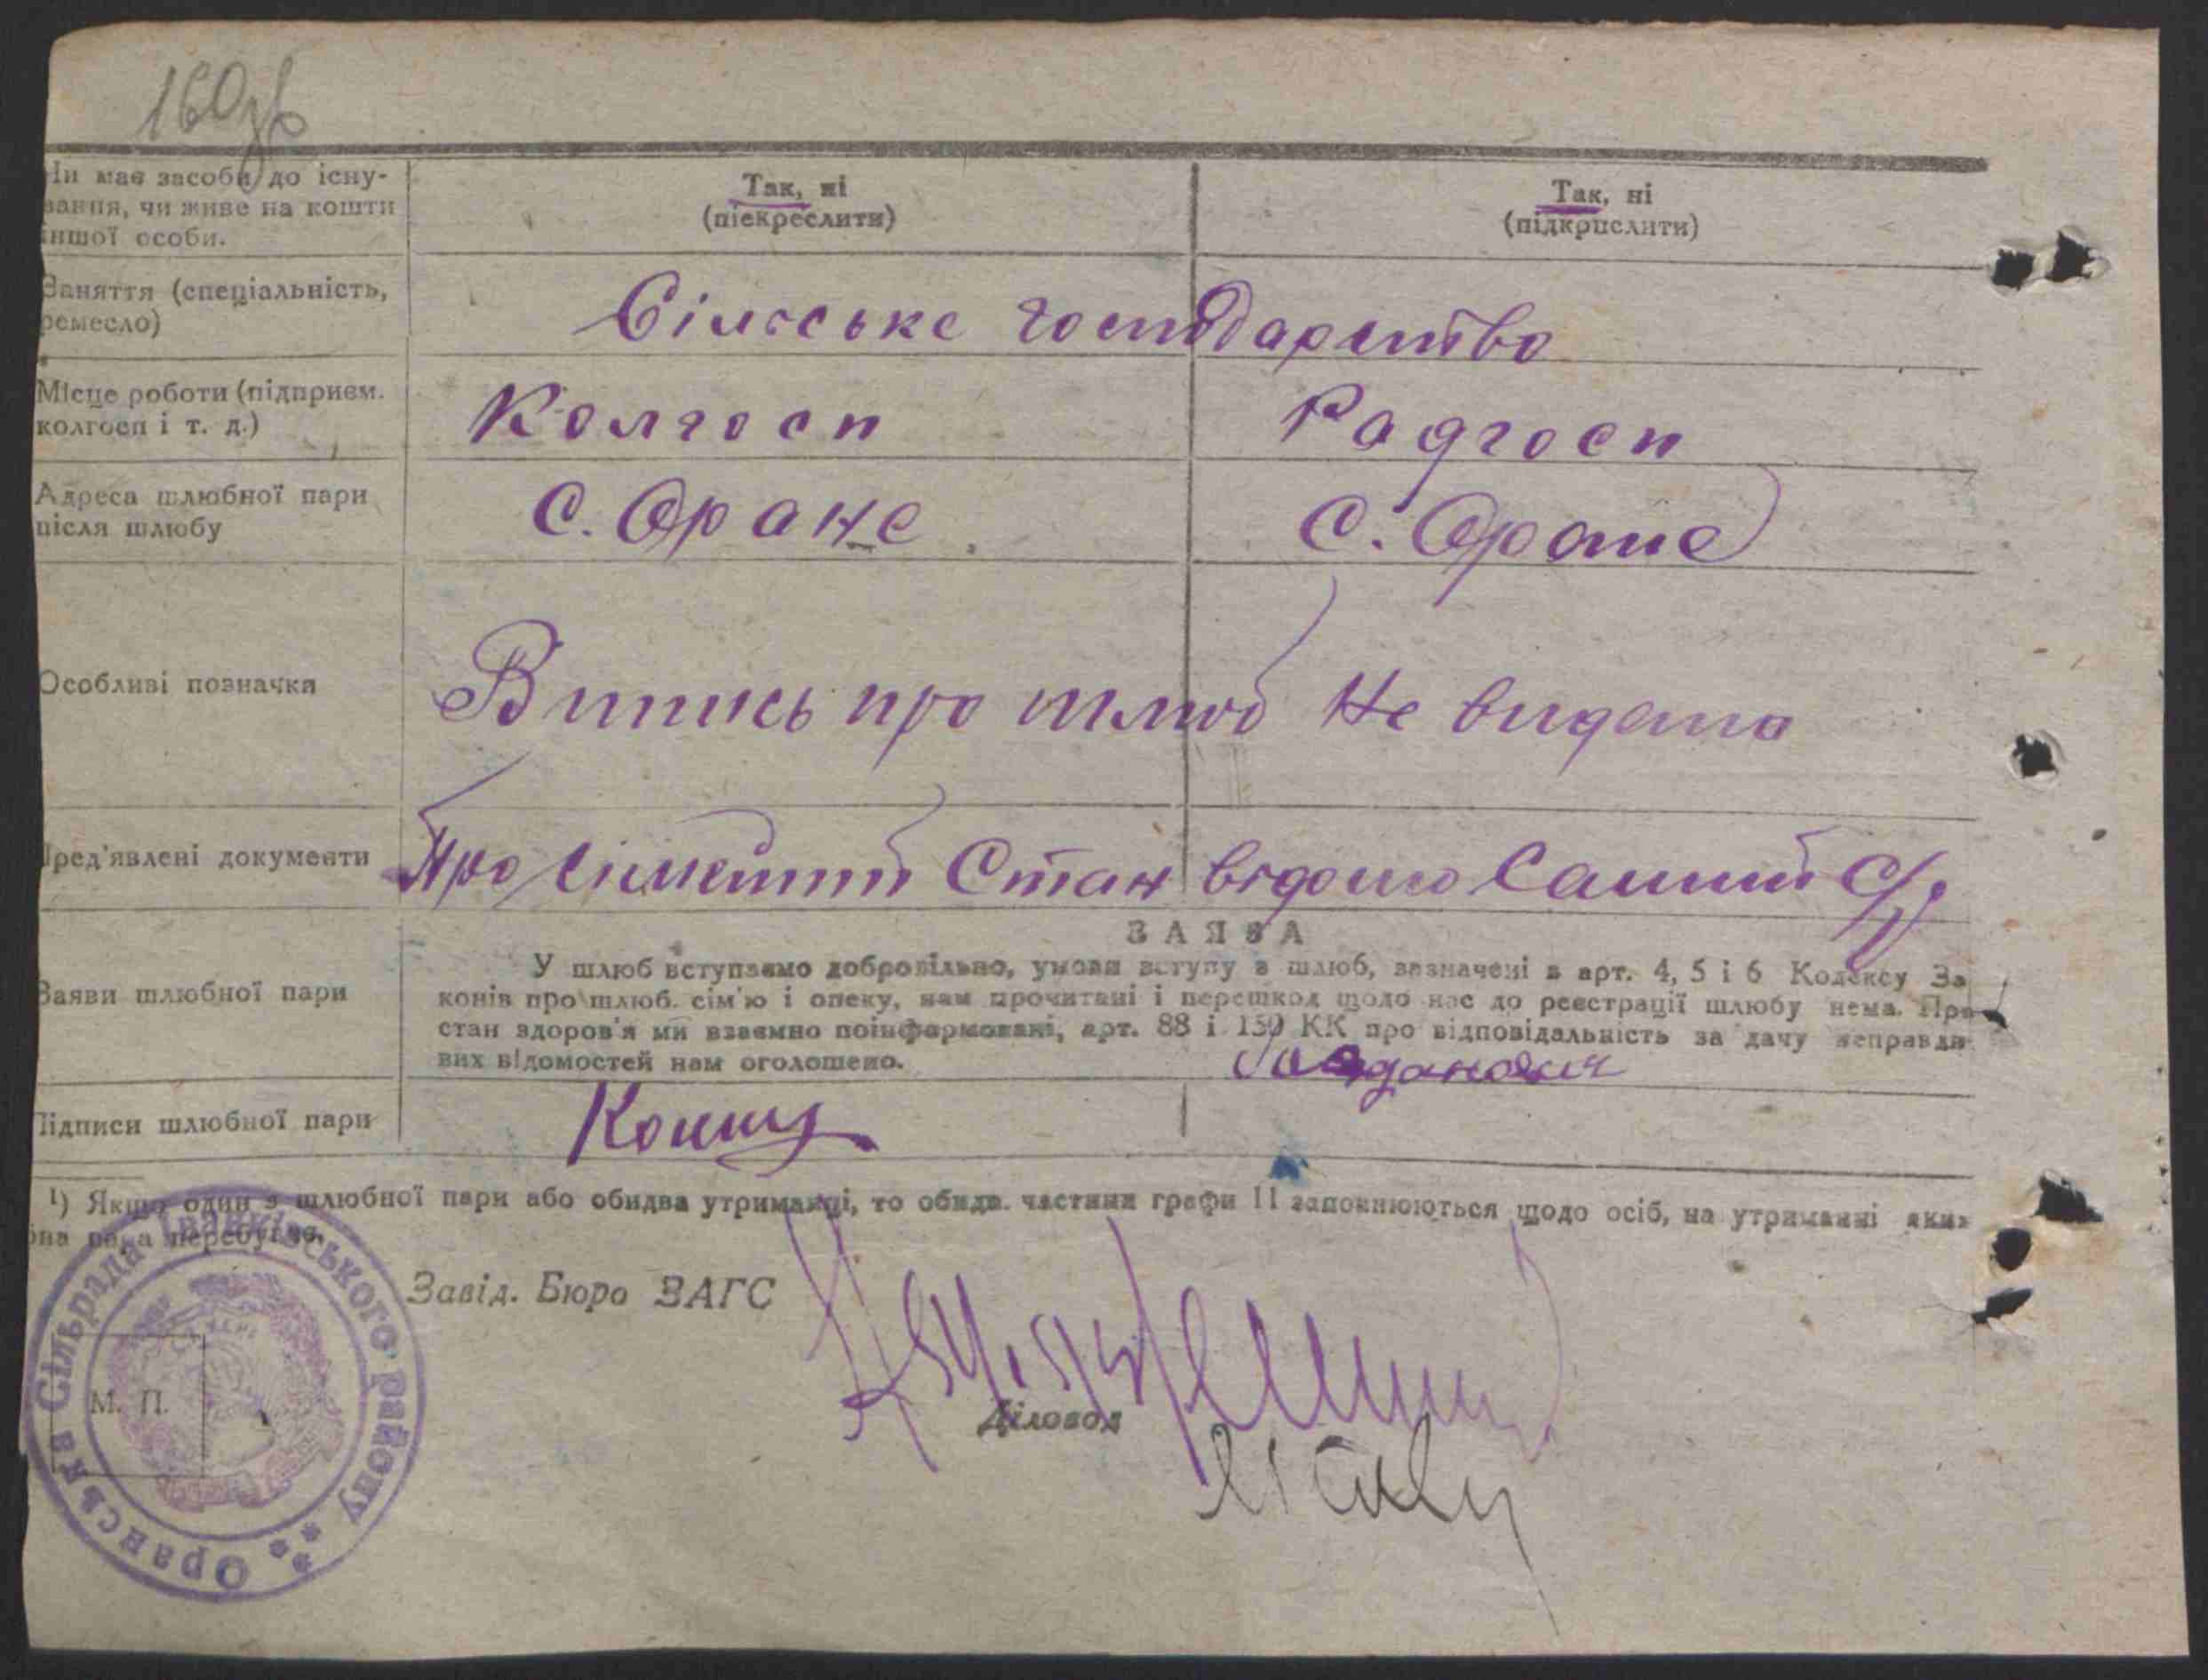 160зв
Чи має засоби до існу-
вання, чи живе на кошти
іншої особи.
Так, ні
(піекреслити)
Так, ні
(підкрпслити)
Заняття (спеціальність,
ремесло)
Сільське господарство
Місце роботи (підприєм.
колгосп і т. д.)
Колгосп
Радгосп
Адреса шлюбної пари
після шлюбу
С. Оране
С. Оране
Особливі позначки
Випись про шлюб не видана
Пред'явлені документи
Про сімейний стан відомо самий с/р
ЗАЯВА
Заяви шлюбної пари
У шлюб вступаємо добровільно, умови вступу в шлюб, зазначені в арт. 4, 5 і 6 Кодексу За
конів про шлюб. сім'ю і опеку, нам прочитані і перешкод щодо нас до реєстрації шлюбу нема. Про
стан здоров'я ми взаємно поінформовані, арт. 88 і 130 КК про відповідальність за дачу неправди
вих відомостей нам оголошено.
Підписи шлюбної пари
¹) Якщо один з шлюбної пари або обидва утриманці, то обидв. частини графи 11 заповнюються щодо осіб, на утриманні яких
вона перебуває.
Завід. Бюро ЗАГС
Діловод
М. П.
Оранська Сільрада Іванківського району